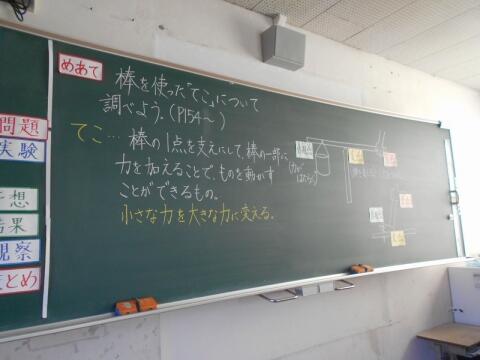 めあて
棒を使った「てこ」について
調べよう。(P154～)
てこ…棒の1点を支えにして、棒の一部に
力を加えることで、ものを動かす
ことができるもの。
小さな力を大きな力に変える。
問題
実験
予想
結果
観察
まとめ